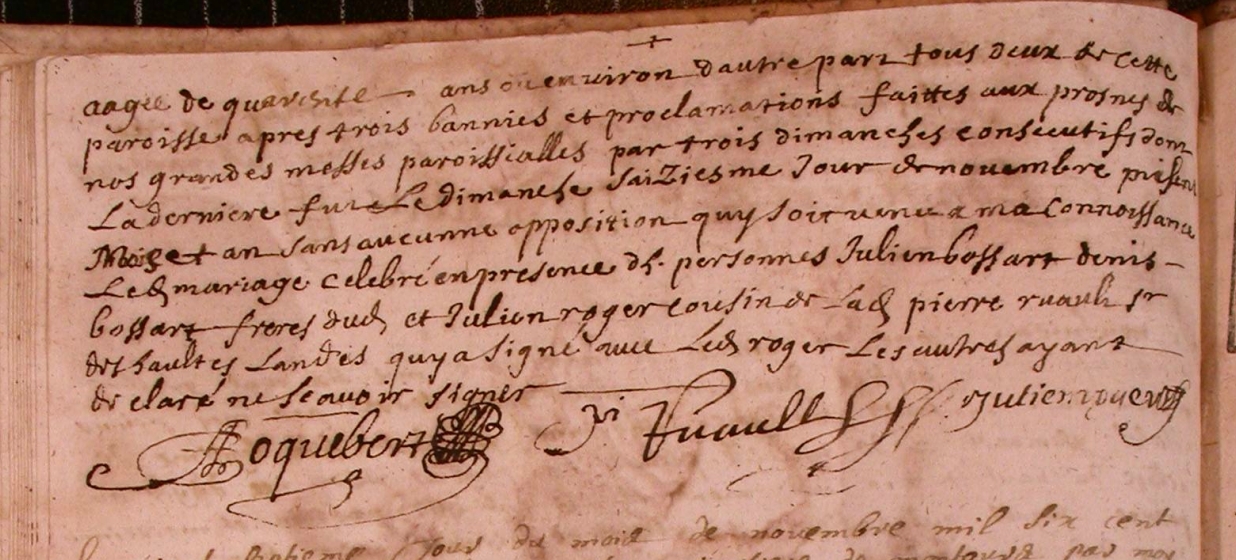 aagee de quarente ans ou environ dautre part tous deux de cette
paroisse apres trois bannies et proclamations faittes aux prosnes de
nos grandes messes paroissialles par trois dimanches consecutifs dont
La derniere fut Le dimanche saiziesme Jour de novembre present
Moys et an sans aucunne opposition quy soit venue a ma connoissance
Led mariage celebré en presence ds. personnes Julien bossart denis -
bossart freres dud et Julien roger cousin de Lad pierre ruault sr
des haultes Landes quy a signé avec Led roger Les autres ayant
declaré ne scavoir signer
Roquebert pi Ruault Julien roger
Jour du mois de novembre mil six cent